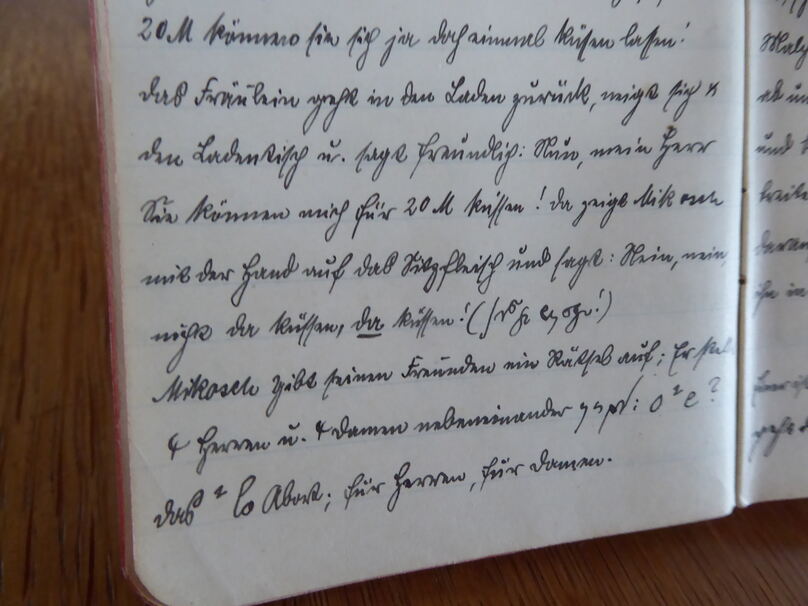 20 M können sie sich ja doch einmal küssen lassen!
das Fräulein geht in den Laden zurück, neigt sich
den Ladentisch u. sagt freundlich: Nun, mein Herr
Sie können mich für 20 M küssen! da zeigt Mikosch
mit der Hand auf das Sitzfleisch und sagt: Nein, nein,
nicht da küssen, da küssen!
Mikosch gibt seinen Freunden ein Rätsel auf; Er
4 Herren u. 4 Damen nebeneinander
das Abort; für Herren, für Damen.
und